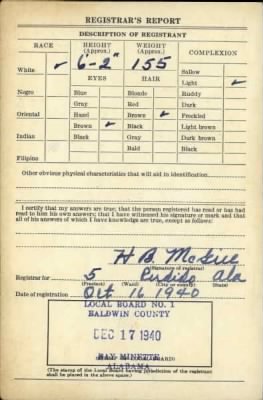 REGISTRAR'S REPORT
DESCRIPTION OF REGISTRANT
RACE HEIGHT (Approx.) WEIGHT (Approx.) COMPLEXION
White ✓ 6'-2" 155 Sallow
EYES HAIR Light ✓
Negro Blue Blonde Ruddy
Gray Red Dark
Oriental Hazel Brown ✓ Freckled
Brown ✓ Black Light brown
Indian Black Gray Dark brown
Bald Black
Filipino
Other obvious physical characteristics that will aid in identification
I certify that my answers are true; that the person registered has read or has had
read to him his own answers; that I have witnessed his signature or mark and that
all of his answers of which I have knowledge are true, except as follows:
H B
(Signature of registrar)
Registrar for 5 Perdido Ala
(Precinct) (Ward) (City or county)
Date of registration Oct 16 1940
LOCAL BOARD NO. 1
BALDWIN COUNTY
DEC 17 1940
BAY MINETTE
ALABAMA
(The stamp of the Local Board having jurisdiction of the registrant
shall be placed in the above space.)